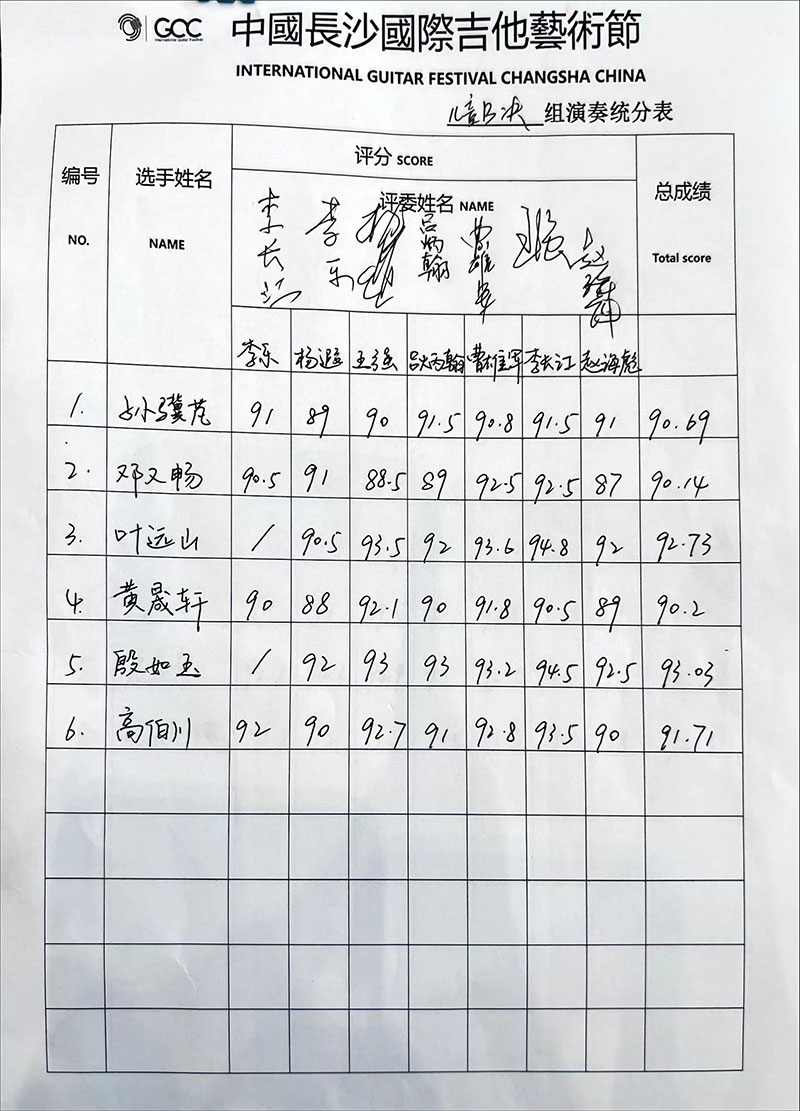 GCC 中國長沙國際吉他藝術節
International Guitar Festival
INTERNATIONAL GUITAR FESTIVAL CHANGSHA CHINA
组演奏统分表
编号 选手姓名 评分 SCORE 总成绩
NO. NAME 评委姓名 NAME Total score
李长江 李乐 吕炳翰 曹雄军 王强 赵海彪
李乐 杨遐 王强 吕炳翰 曹雄军 李长江 赵海彪
1. 孙骥苋 91 89 90 91.5 90.8 91.5 91 90.69
2. 邓又畅 90.5 91 88.5 89 92.5 92.5 87 90.14
3. 叶远山 / 90.5 93.5 92 93.6 94.8 92 92.73
4. 黄晟轩 90 88 92.1 90 91.8 90.5 89 90.2
5. 殷如玉 / 92 93 93 93.2 94.5 92.5 93.03
6. 高伯川 92 90 92.7 91 92.8 93.5 90 91.71